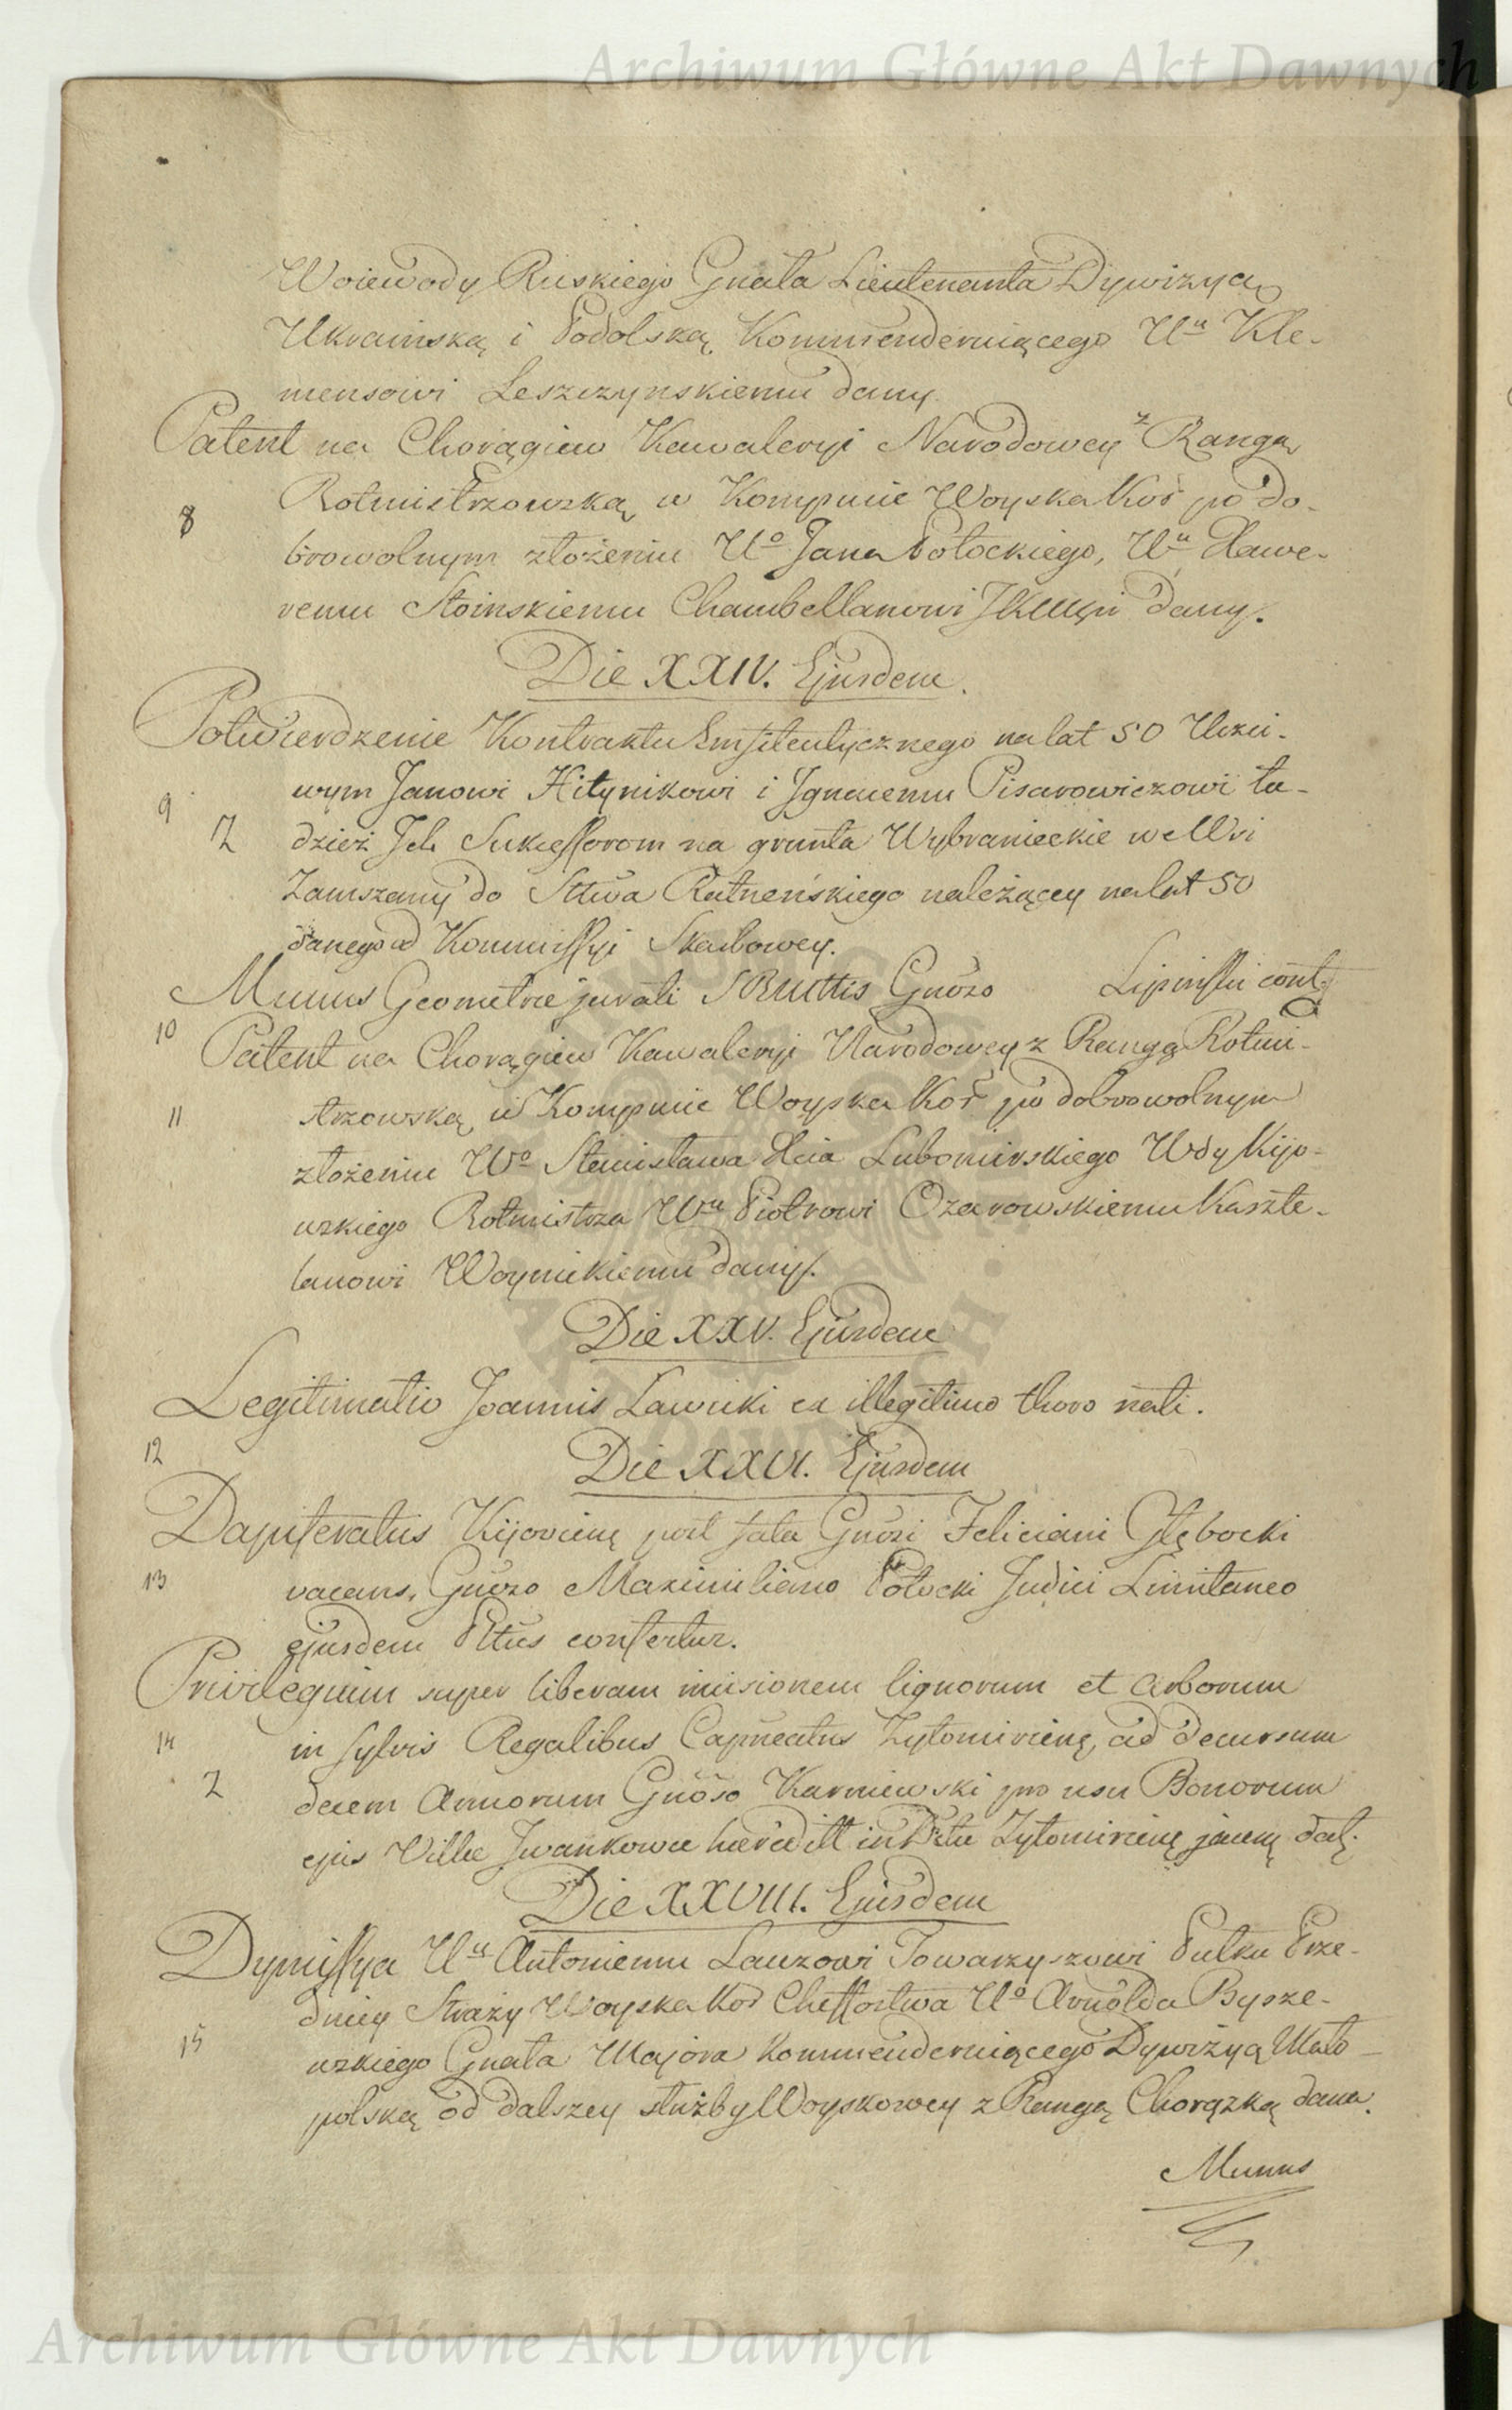 Archiwum Główne Akt Dawnych
Woiewody Ruskiego Gnała Lieutenanta Dywizyą
Ukrainską i Podolską Kommenderuiącego Uu Kle-
mensowi Leszczynskiemu dany.
Patent na Chorągiew Kawaleryi Narodowey z Rangą
8 Rotmistrzowską w Kompucie Woyska Kor po do-
browolnym złożeniu Uo Jana Potockiego, Wu Xawe-
remu Stoinskiemu Chambellanowi JKMci dany.
Die XXIV. Ejusdem.
Potwierdzenie Kontraktu Emfiteutycznego na lat 50 Uczci-
wym Janowi Hitynikowi i Jgnacemu Pisarowiczowi tu-
9 dzież Jch Sukcessorom na grunta Wybranieckie we Wsi
Zamszany do Sttwa Ratneńskiego należącey na lat 50
danego od Kommissyi Skarbowey.
Munus Geometrae jurati SRMttis Gnoso Lipinski cont.
10
Patent na Chorągiew Kawaleryi Narodowey z Rangą Rotmi-
11 strzowską w Kompucie Woyska Kor po dobrowolnym
złożeniu Wo Stanisława Xcia Lubomirskiego Wdy Kijo-
wskiego Rotmistrza Wu Piotrowi Ożarowskiemu Kaszte-
lanowi Woynickiemu dany.
Die XXV. Ejusdem
Legitimatio Joannis Ławicki ex illegitimo thoro nati.
12
Die XXVI. Ejusdem
Dapiferatus Kijovienę post fata Gnosi Feliciani Głębocki
13 vacans, Gnoso Maximiliano Potocki Judici Limitaneo
ejusdem Pttus confertur.
Privilegium super liberam incisionem lignorum et arborum
14 in sylvis Regalibus Capneatus Zytomirienę, ad decursum
decem Annorum Gnoso Karniewski pro usu Bonorum
ejus Villae Jwankowce haeredítt in Pttu Zytomirienę jacenę datę.
Die XXVIII. Ejusdem
Dymissya Uu Antoniemu Lauzowi Towarzyszowi Pułku Prze-
dniey Straży Woyska Kor Cheffostwa Uo Arnolda Bysze-
15 wskiego Gnała Majora Kommenderuiącego Dywizyą Mało-
polską od dalszey służby Woyskowey z Rangą Chorążką dana.
Munus
Archiwum Główne Akt Dawnych